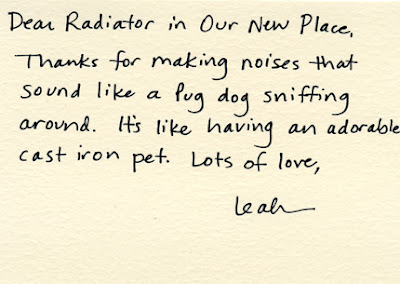 Dear Radiator in Our New Place,
Thanks for making noises that
sound like a Pug dog sniffing
around. It's like having an adorable
cast iron pet. Lots of love,
Leah